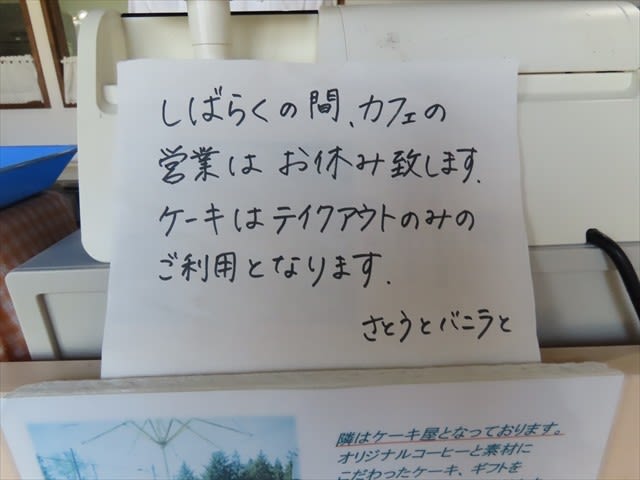 しばらくの間、カフェの
営業は お休み致します.
ケーキはテイクアウトのみの
ご利用となります.
さとうとバニラと
隣はケーキ屋となっております。
オリジナルコーヒーと素材に
こだわったケーキ、ギフトを